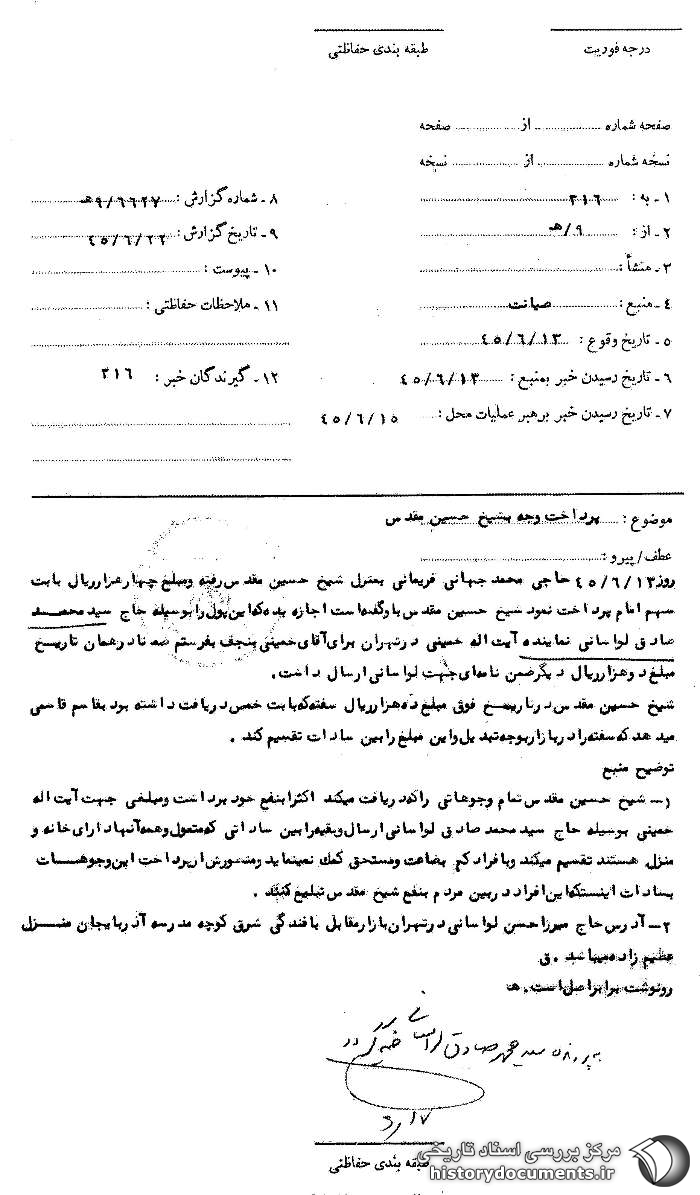 درجه فوریت
طبقه بندی حفاظتی
صفحه شماره از صفحه
نسخه شماره از نسخه
۱ - به : ۳۱۶
۲ - از : ۹/هـ
۳ - منشأ :
۴ - منبع : صیانت
۵ - تاریخ وقوع : ۴۵/۶/۱۳
۶ - تاریخ رسیدن خبر بمنبع : ۴۵/۶/۱۳
۷ - تاریخ رسیدن خبر برهبر عملیات محل : ۴۵/۶/۱۵
۸ - شماره گزارش : ۹/۶۶۲۷هـ
۹ - تاریخ گزارش : ۴۵/۶/۲۲
۱۰ - پیوست :
۱۱ - ملاحظات حفاظتی :
۱۲ - گیرندگان خبر : ۳۱۶
موضوع : پرداخت وجه بشیخ حسین مقدس
عطف/پیرو :
روز ۴۵/۶/۱۳ حاجی محمد جهانی فریمانی بمنزل شیخ حسین مقدس رفته ومبلغ چهار هزار ریال بابت
سهم امام پرداخت نمود شیخ حسین مقدس باو گفته است اجازه بده که این پول را بوسیله حاج سید محمد
صادق لواسانی نماینده آیت اله خمینی در تهران برای آقای خمینی بنجف بفرستم ضمنا در همان تاریخ
مبلغ دو هزار ریال دیگر ضمن نامه ای جهت لواسانی ارسال داشت.
شیخ حسین مقدس در تاریخ فوق مبلغ ده هزار ریال سفته که بابت خمس دریافت داشته بود بقاسم قاسمی
میدهد که سفته را در بازار بوجه تبدیل و این مبلغ را بین سادات تقسیم کند .
توضیح منبع
۱- شیخ حسین مقدس تمام وجوهاتی را که دریافت میکند اکثرا بنفع خود برداشت ومبلغی جهت آیت اله
خمینی بوسیله حاج سید محمد صادق لواسانی ارسال وبقیه را بین ساداتی که متمول وهمه آنها دارای خانه و
منزل هستند تقسیم میکند وبافراد کم بضاعت ومستحق کمک نمینماید ومنظورش از پرداخت این وجوهات
بسادات اینستکه این افراد در بین مردم بنفع شیخ مقدس تبلیغ کنند .
۲- آدرس حاج میرزا حسن لواسانی در تهران بازار مقابل بافندگی شرق کوچه مدرسه آذربایجان منزل
عظیم زاده میباشد . ق
رونوشت برابر اصل است . هـ
به پرونده سید محمد صادق لواسانی
طبقه بندی حفاظتی
مرکز بررسی اسناد تاریخی
historydocuments.ir